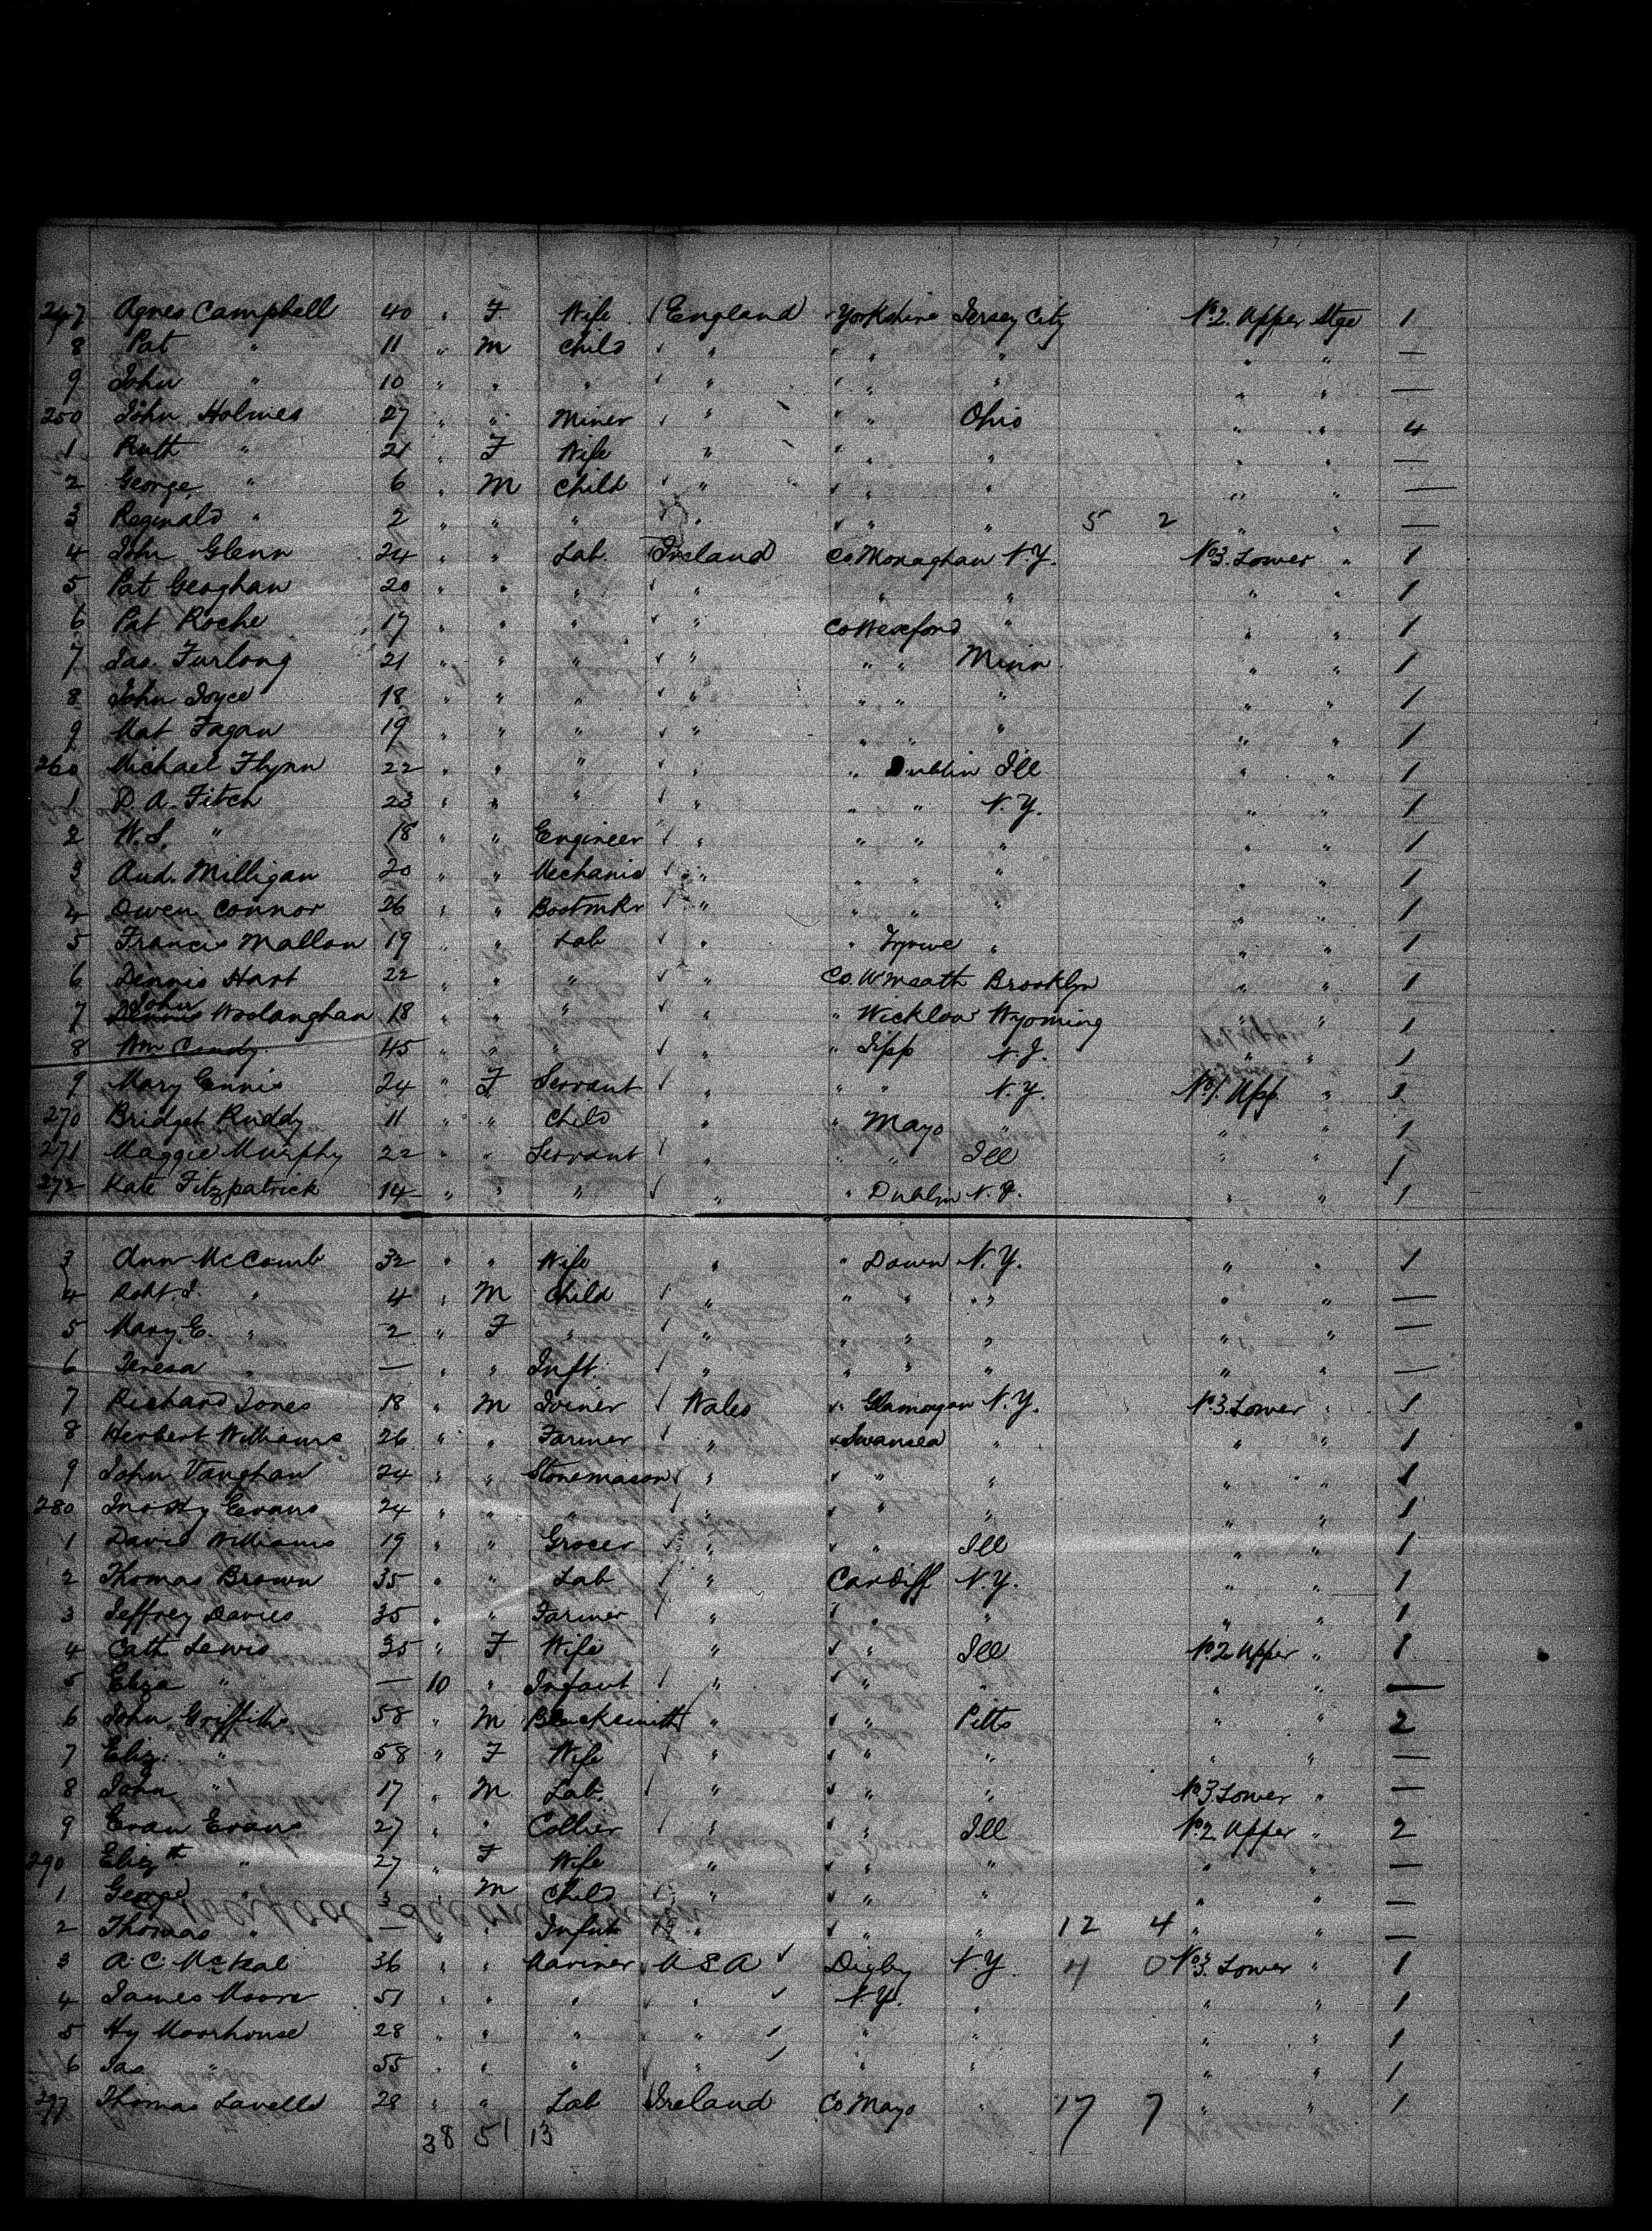 247 Agnes Campbell 40 " F Wife England Yorkshire Jersey City No 2. Upper Stge 1
8 Pat " 11 " M Child " " " " " —
9 John " 10 " " " " " " " " —
250 John Holmes 27 " " Miner " " Ohio " " 4
1 Ruth " 21 " F Wife " " " " " —
2 George " 6 " M Child " " " " " —
3 Reginald " 2 " " " " " " 5 2 " " —
4 John Glenn 24 " " Lab. Ireland Co Monaghan N.Y. No 3. Lower " 1
5 Pat Geoghan 20 " " " " " " " " 1
6 Pat Roche 17 " " " " Co Wexford " " " 1
7 Jas. Furlong 21 " " " " " " Minn " " 1
8 John Joyce 18 " " " " " " " " " 1
9 Mat Fagan 19 " " " " " " " " " 1
260 Michael Flynn 22 " " " " " Dublin Ill " " 1
1 D. A. Fitch 23 " " " " " " N.Y. " " 1
2 W. S. " 18 " " Engineer " " " " " " 1
3 And. Milligan 20 " " Mechanic " " " " " " 1
4 Owen Connor 26 " " Bootmkr " " " " " " 1
5 Francis Mallon 19 " " Lab " " Tyrone " " " 1
6 Dennis Hart 22 " " " " Co. W meath Brooklyn " " 1
7 John Dennis Woolanghan 18 " " " " " Wicklow Wyoming " " 1
8 Wm Candy 45 " " " " " Tipp N.J. " " 1
9 Mary Ennis 24 " F Servant " " " N.Y. No 1. Upp " 1
270 Bridget Ruddy 11 " " Child " " Mayo " " " 1
271 Maggie Murphy 22 " " Servant " " " Ill " " 1
272 Kate Fitzpatrick 14 " " " " " Dublin N.J. " " 1
3 Ann McComb 32 " " Wife " " Down N.Y. " " 1
4 Robt. J. " 4 " M Child " " " " " " —
5 Mary E. " 2 " F " " " " " " " —
6 Teresa " — " " Inft. " " " " " " —
7 Richard Jones 18 " M Joiner Wales " Glamorgan N.Y. No 3. Lower " 1
8 Herbert Williams 26 " " Farmer " Swansea " " " 1
9 John Vaughan 24 " " Stonemason " " " " " 1
280 Jno Hy Evans 24 " " " " " " " " 1
1 David Williams 19 " " Grocer " " Ill " " 1
2 Thomas Brown 35 " " Lab " Cardiff N.Y. " " 1
3 Jeffrey Davies 35 " " Farmer " " " " " 1
4 Cath Lewis 35 " F Wife " " Ill No 2 Upper " 1
5 Eliza " — 10 " Infant " " " " " —
6 John Griffiths 58 " M Blacksmith " " Pitts " " 2
7 Eliz. " 58 " F Wife " " " " " —
8 John " 17 " M Lab. " " " No 3 Lower " —
9 Evan Evans 27 " " Collier " " Ill No 2 Upper " 2
290 Elizth " 27 " F Wife " " " " " —
1 George " 3 " M Child " " " " " —
2 Thomas " — " " Infnt " " " 12 4 " " —
3 A. C. McKeal 36 " " Mariner U S A Digby N.Y. 4 0 No 3. Lower " 1
4 James Moore 51 " " " " N.Y. " " " 1
5 Hy Moorhouse 28 " " " " " " " " 1
6 Jas " 55 " " " " " " " " 1
297 Thomas Lavelle 28 " " Lab Ireland Co Mayo " 17 7 " " 1
38 51 13